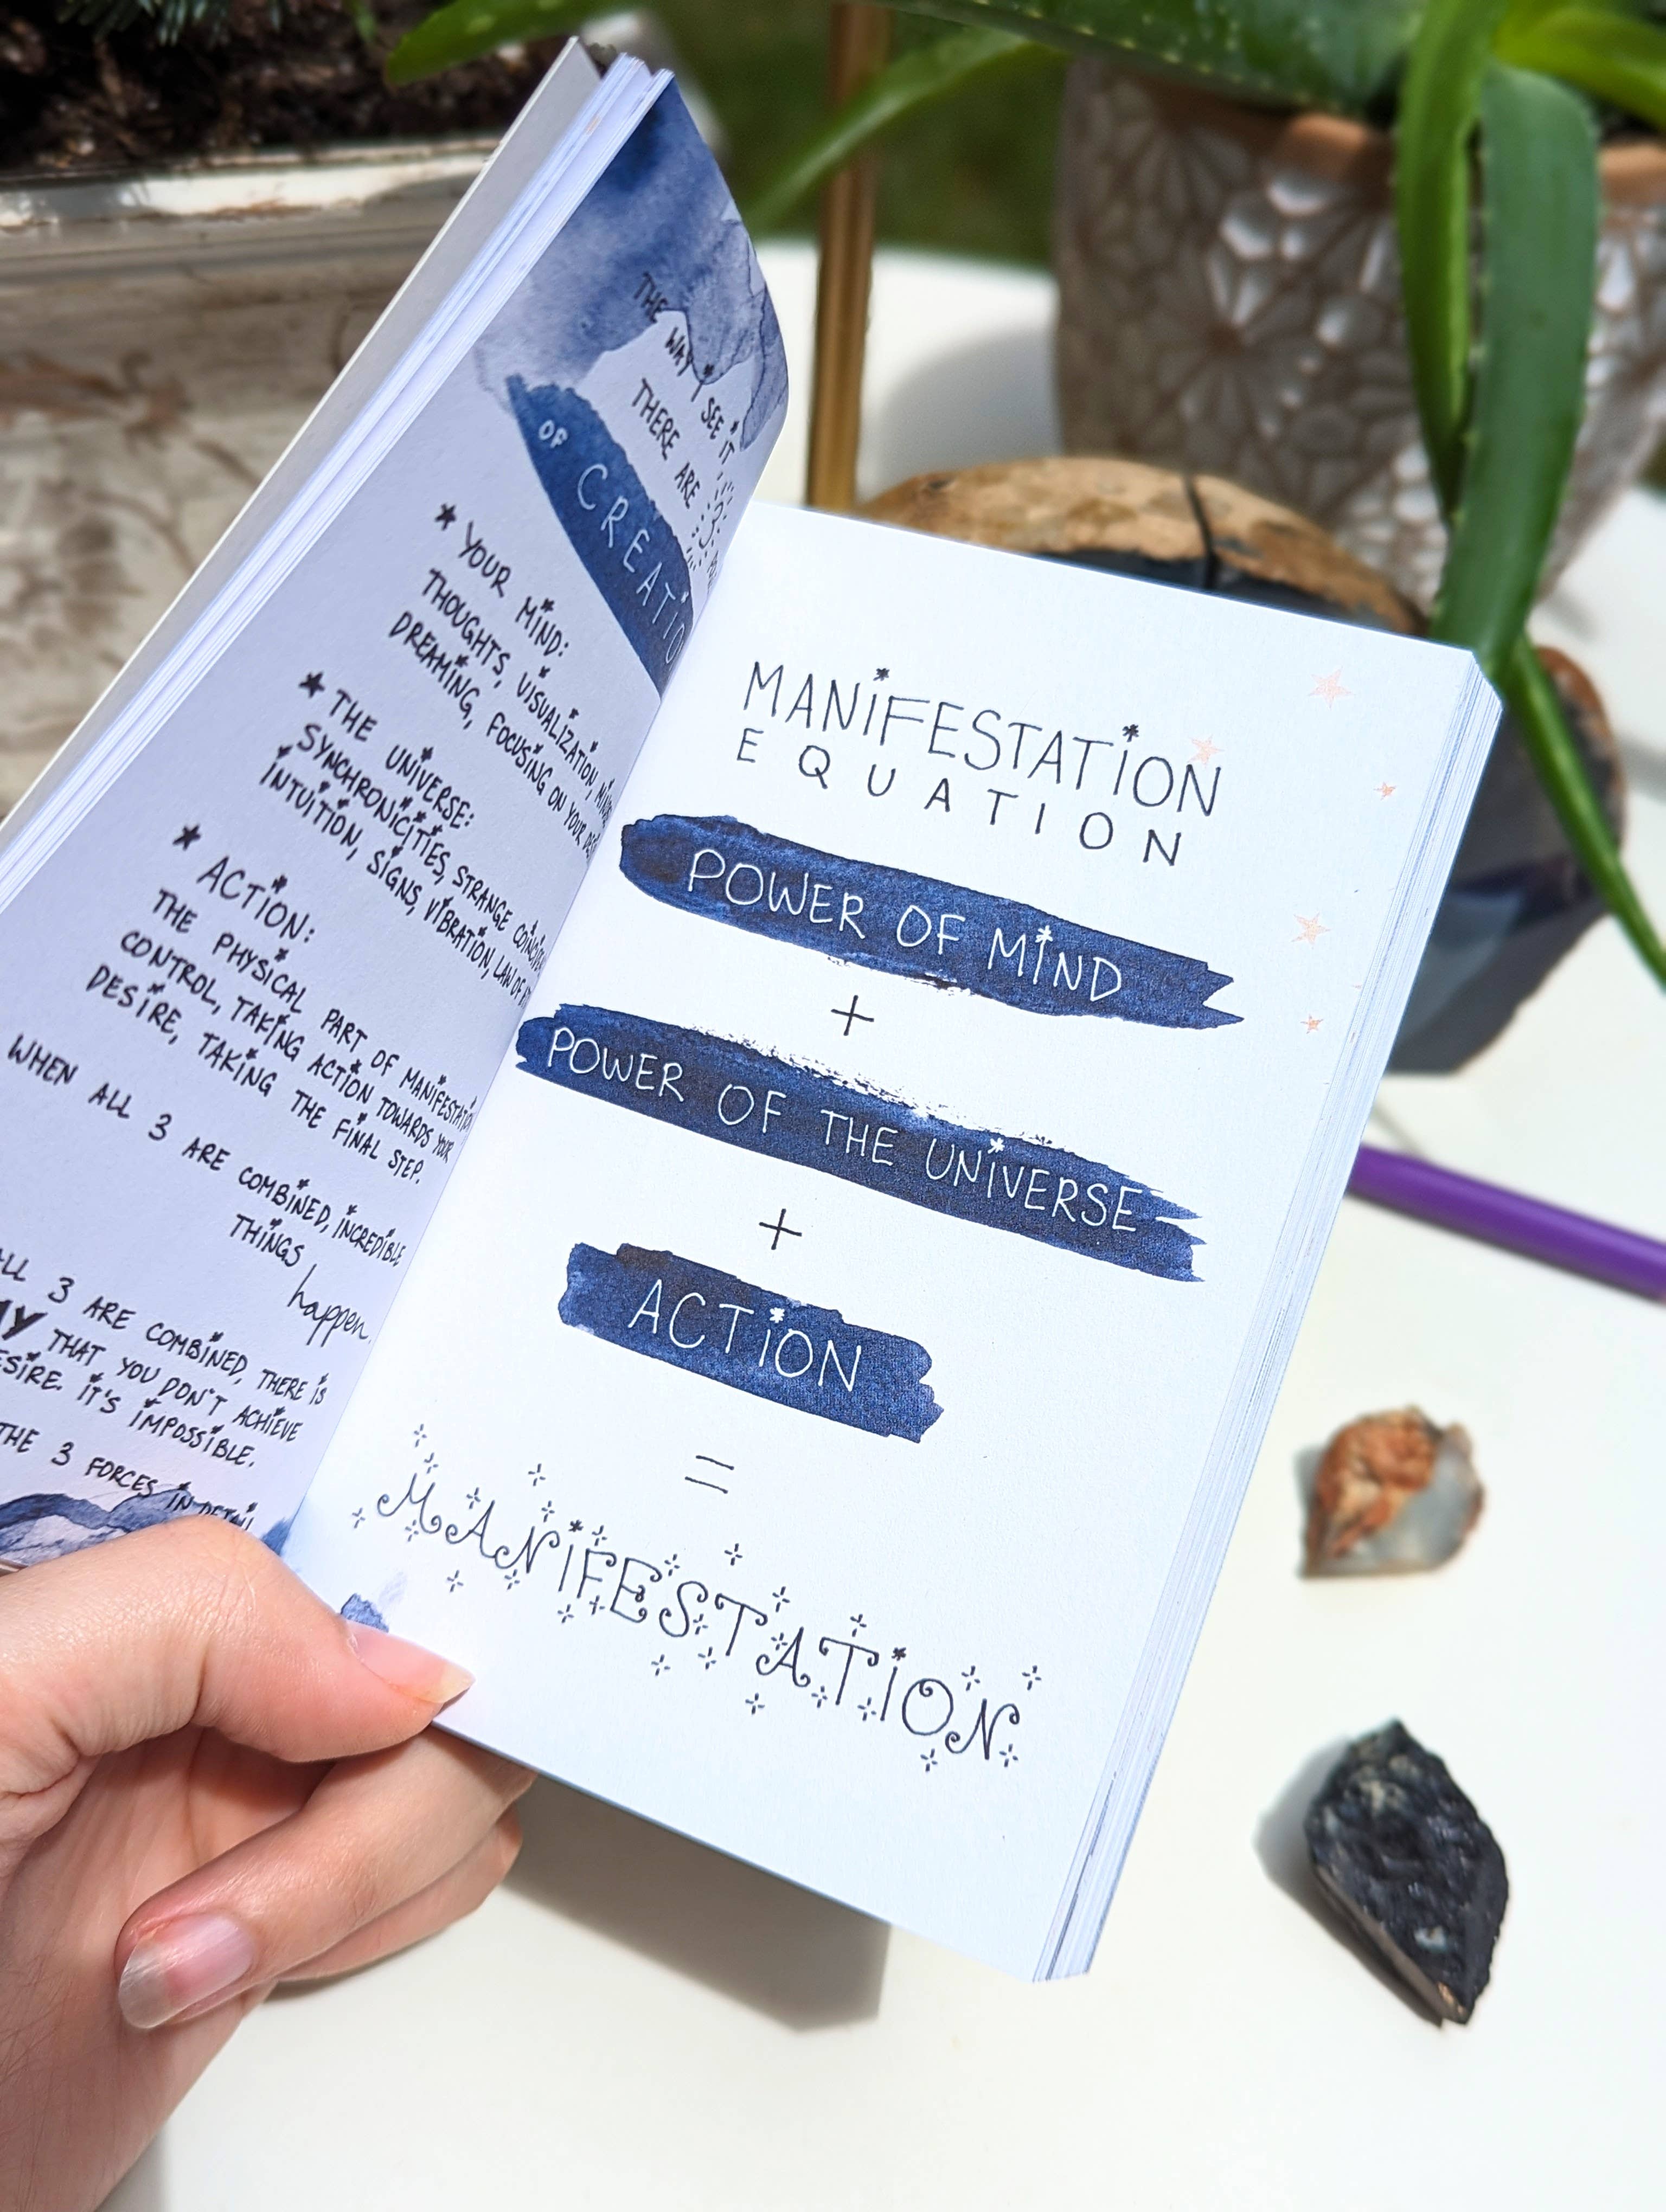 THE WAY I SEE IT
THERE ARE 3
OF CREATIO
★ YOUR MIND:
THOUGHTS, VISUALIZATION,
DREAMING, FOCUSING ON YOUR
★ THE UNIVERSE:
SYNCHRONICITIES, STRANGE
INTUITION, SIGNS, VIBRATION, LAW OF
★ ACTION:
THE PHYSICAL PART OF MANIFESTATIO
CONTROL, TAKING ACTION TOWARDS YOUR
DESIRE, TAKING THE FINAL STEP.
WHEN ALL 3 ARE COMBINED, INCREDIBLE
THINGS
happen.
ALL 3 ARE COMBINED, THERE IS
THAT YOU DON'T ACHIEVE
ESIRE. IT'S IMPOSSIBLE.
THE 3 FORCES IN DETAIL
MANIFESTATION
EQUATION
POWER OF MIND
+
POWER OF THE UNIVERSE
+
ACTION
=
MANIFESTATION